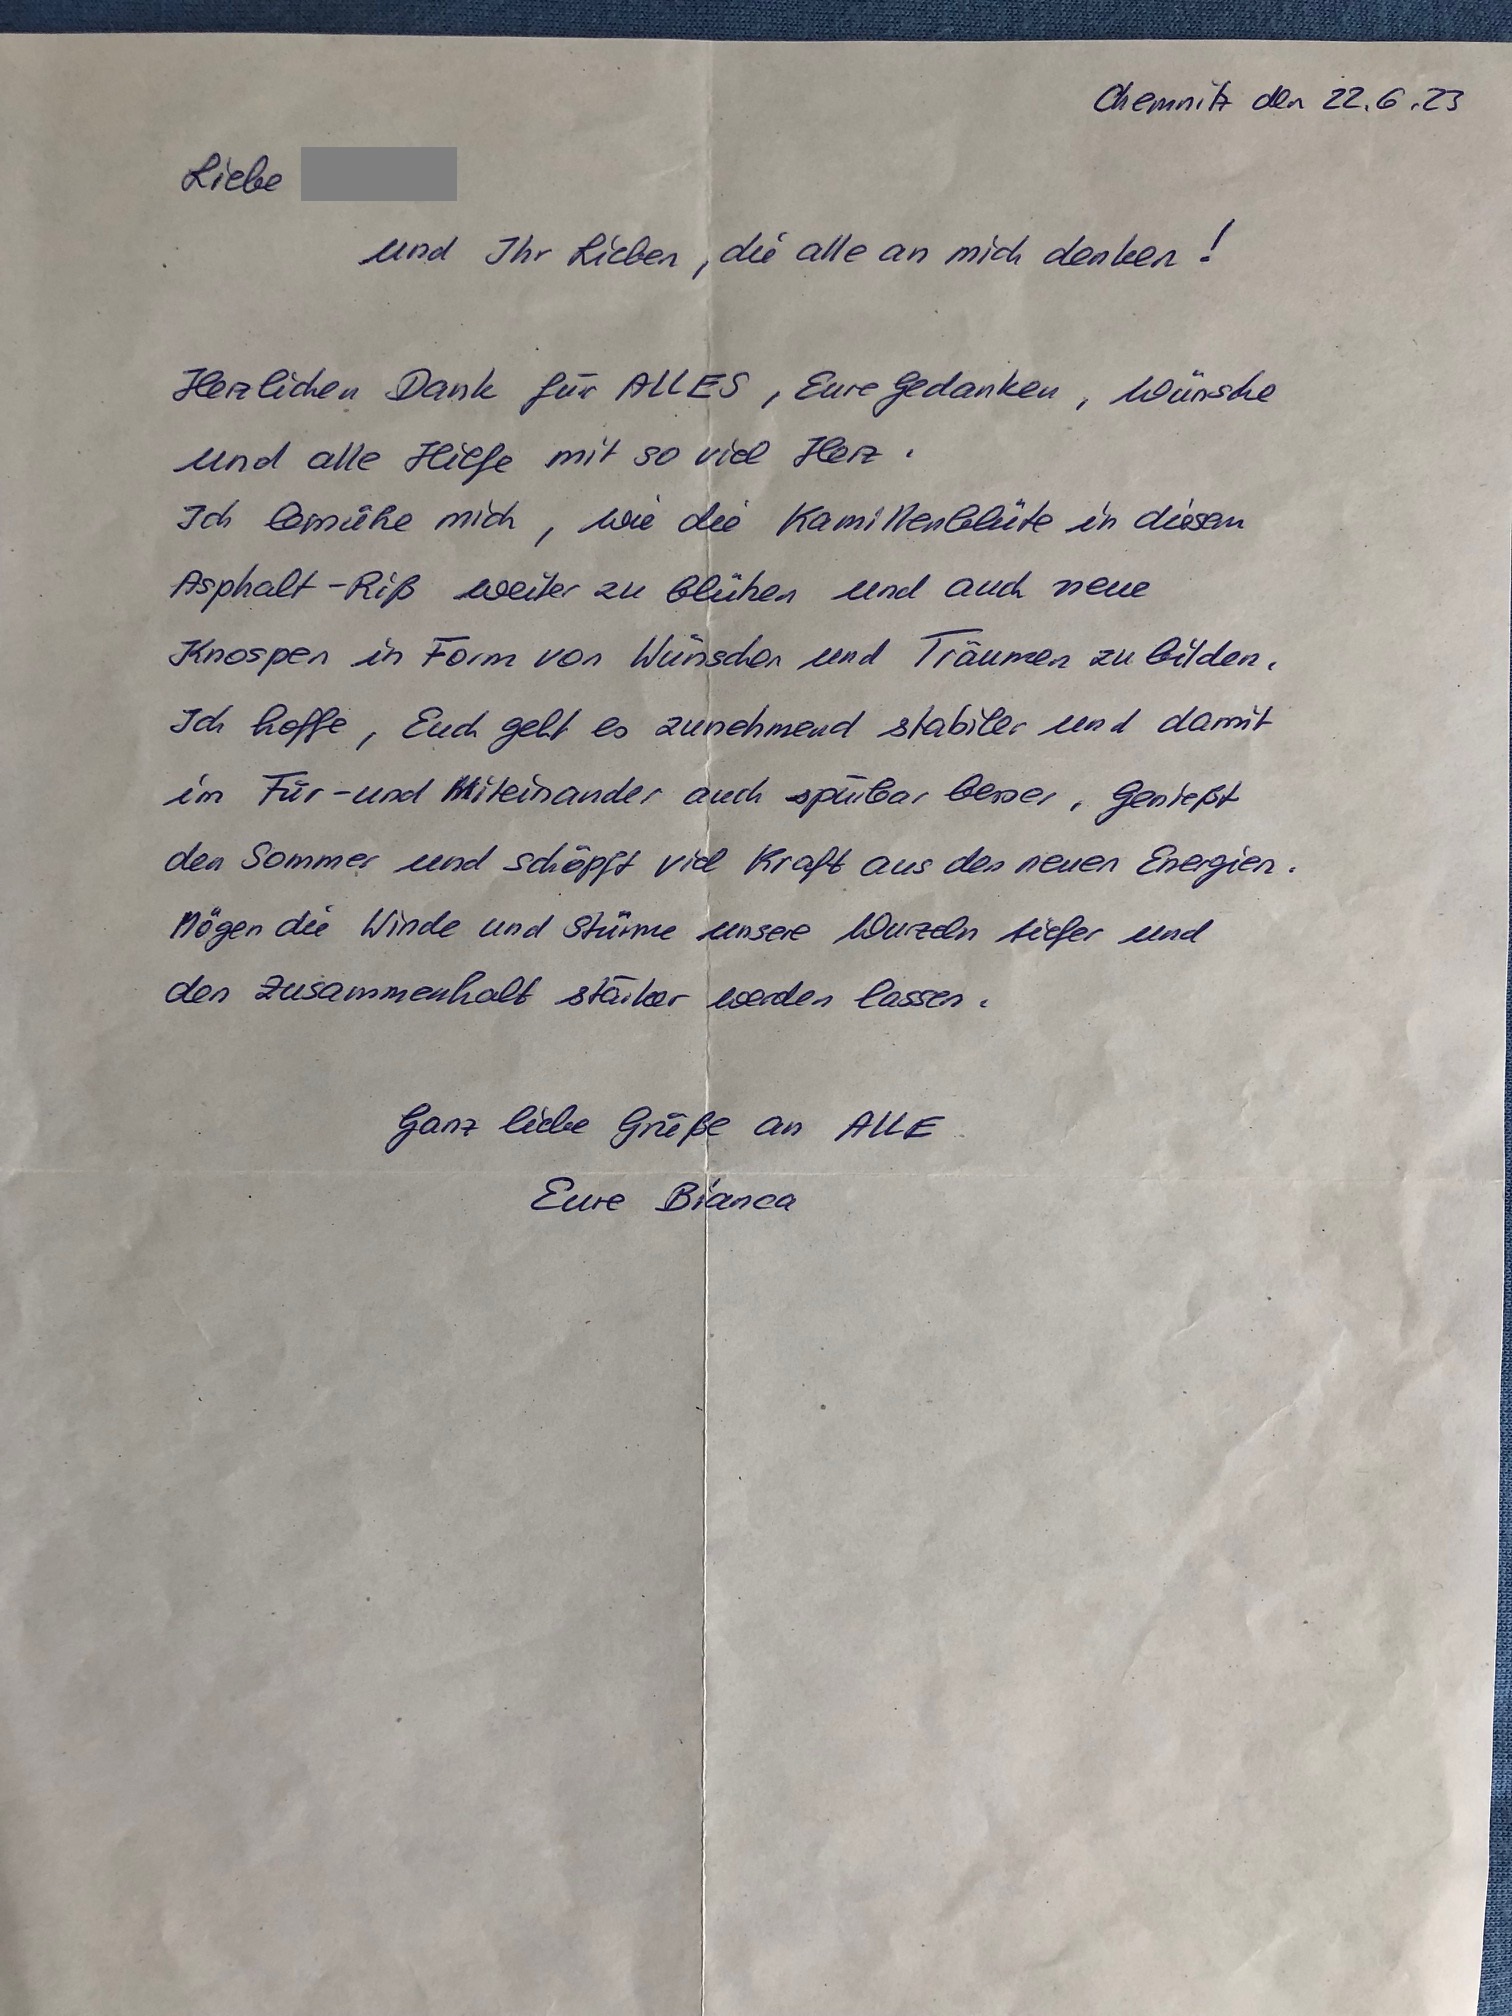 Chemnitz den 22.6.23
Liebe
und Ihr Lieben, die alle an mich denken!
Herzlichen Dank für ALLES, Eure Gedanken, Wünsche
und alle Hilfe mit so viel Herz.
Ich bemühe mich, wie die Kamillenblüte in diesem
Asphalt-Riß weiter zu blühen und auch neue
Knospen in Form von Wünschen und Träumen zu bilden.
Ich hoffe, Euch geht es zunehmend stabiler und damit
im Für-und Miteinander auch spürbar besser, Genießt
den Sommer und schöpft viel Kraft aus den neuen Energien.
Mögen die Winde und Stürme unsere Wurzeln tiefer und
den Zusammenhalt stärker werden lassen.
Ganz liebe Grüße an ALLE
Eure Bianca